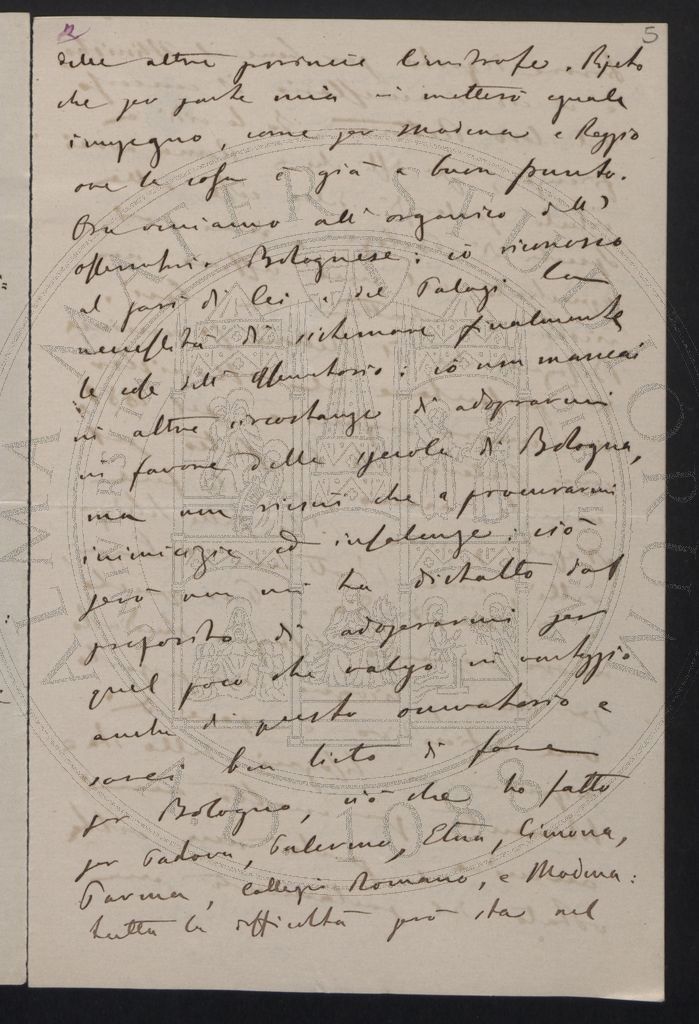 2
5
delle altre provincie limitrofe. Ripeto
che per parte mia mi metterò quale
impegno, come per Modena e Reggio
ove la cosa è già a buon punto.
Ora veniamo all'organico dell'
osservatorio Bolognese: io riconosco
al pari di lei e del Palagi la
necessità di sistemare finalmente
le cose dell'Osservatorio: io non mancai
in altre circostanze di adoprarmi
in favore della specola di Bologna,
ma non riescii che a procurarmi
inimicizie ed insolenze; ciò
però non mi ha distolto dal
proposito di adoperarmi per
quel poco che valgo in vantaggio
anche di questo osservatorio e
sarei ben lieto di fare
per Bologna, ciò che ho fatto
per Padova, Palermo, Etna, Cimone,
Parma, Collegio Romano, e Modena:
tutta la difficoltà però sta nel
ALMA MATER STUDIORUM
A.D. 1088